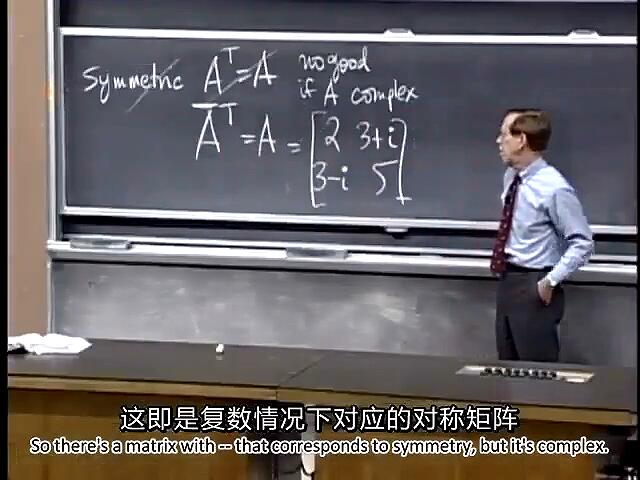 Symmetric A^T = A no good
if A complex
A̅^T = A = [2 3+i
3-i 5]
这即是复数情况下对应的对称矩阵
So there's a matrix with -- that corresponds to symmetry, but it's complex.